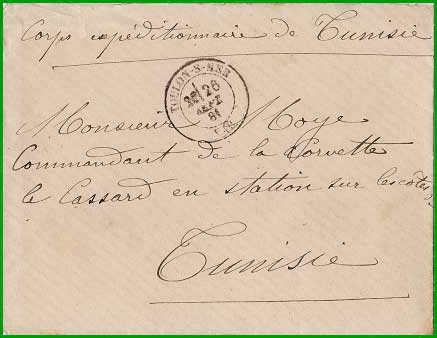 Corps expéditionnaire de Tunisie
TOULON-S-MER
26
SEPT
81
Monsieur Moye
Commandant de la Corvette
le Cassard en station sur les côtes de
Tunisie